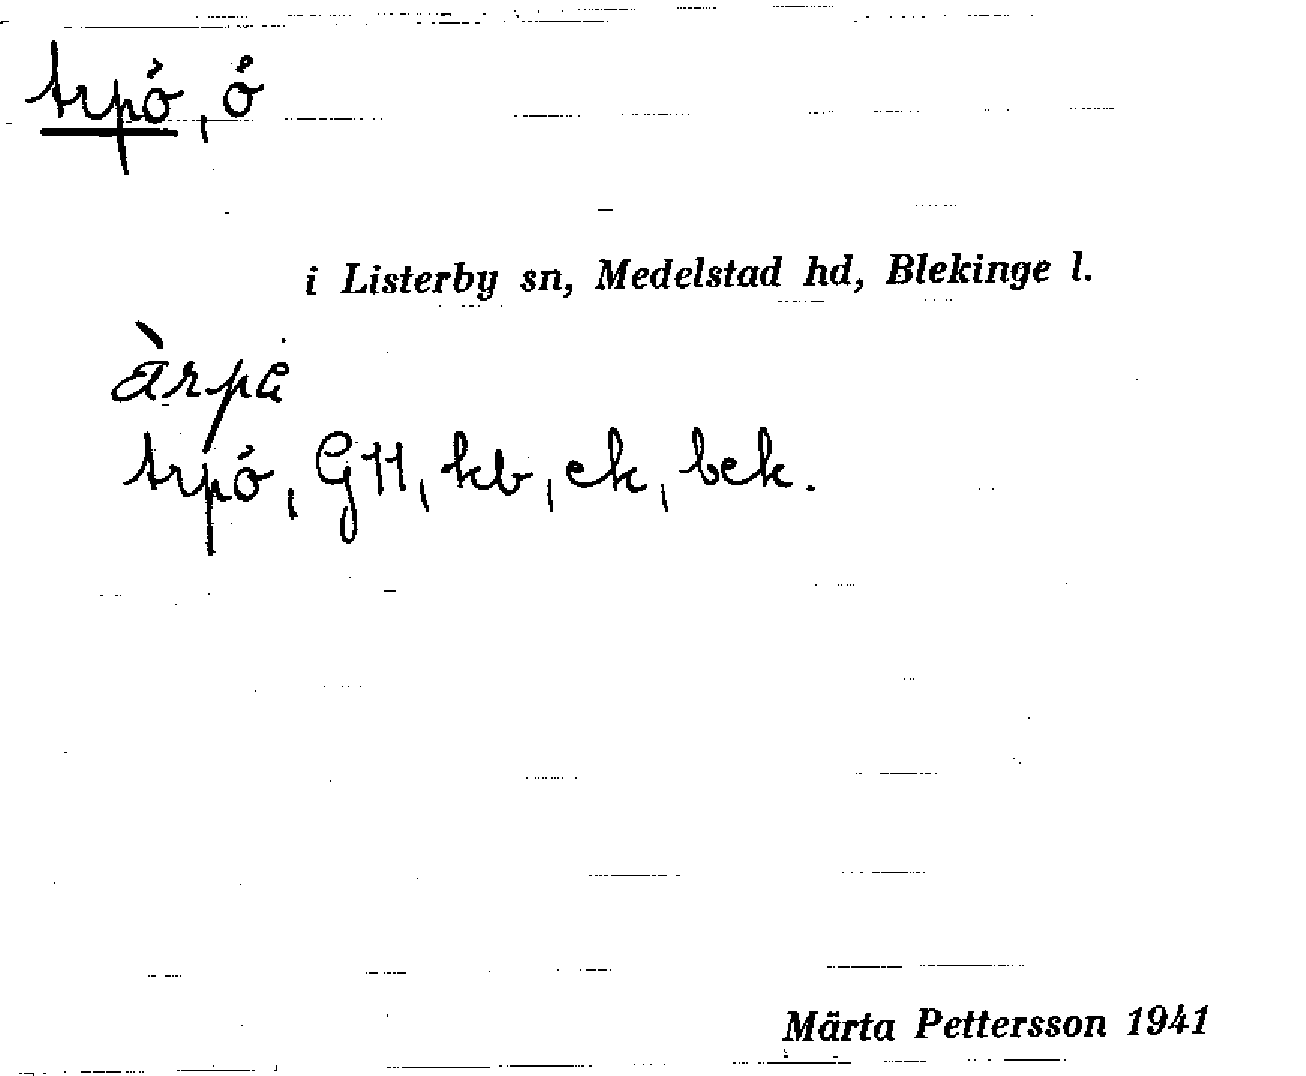 Arpö, ö
i Listerby sn, Medelstad hd, Blekinge l.
Arpö, G11, kb, ek, bek.
Märta Pettersson 1941